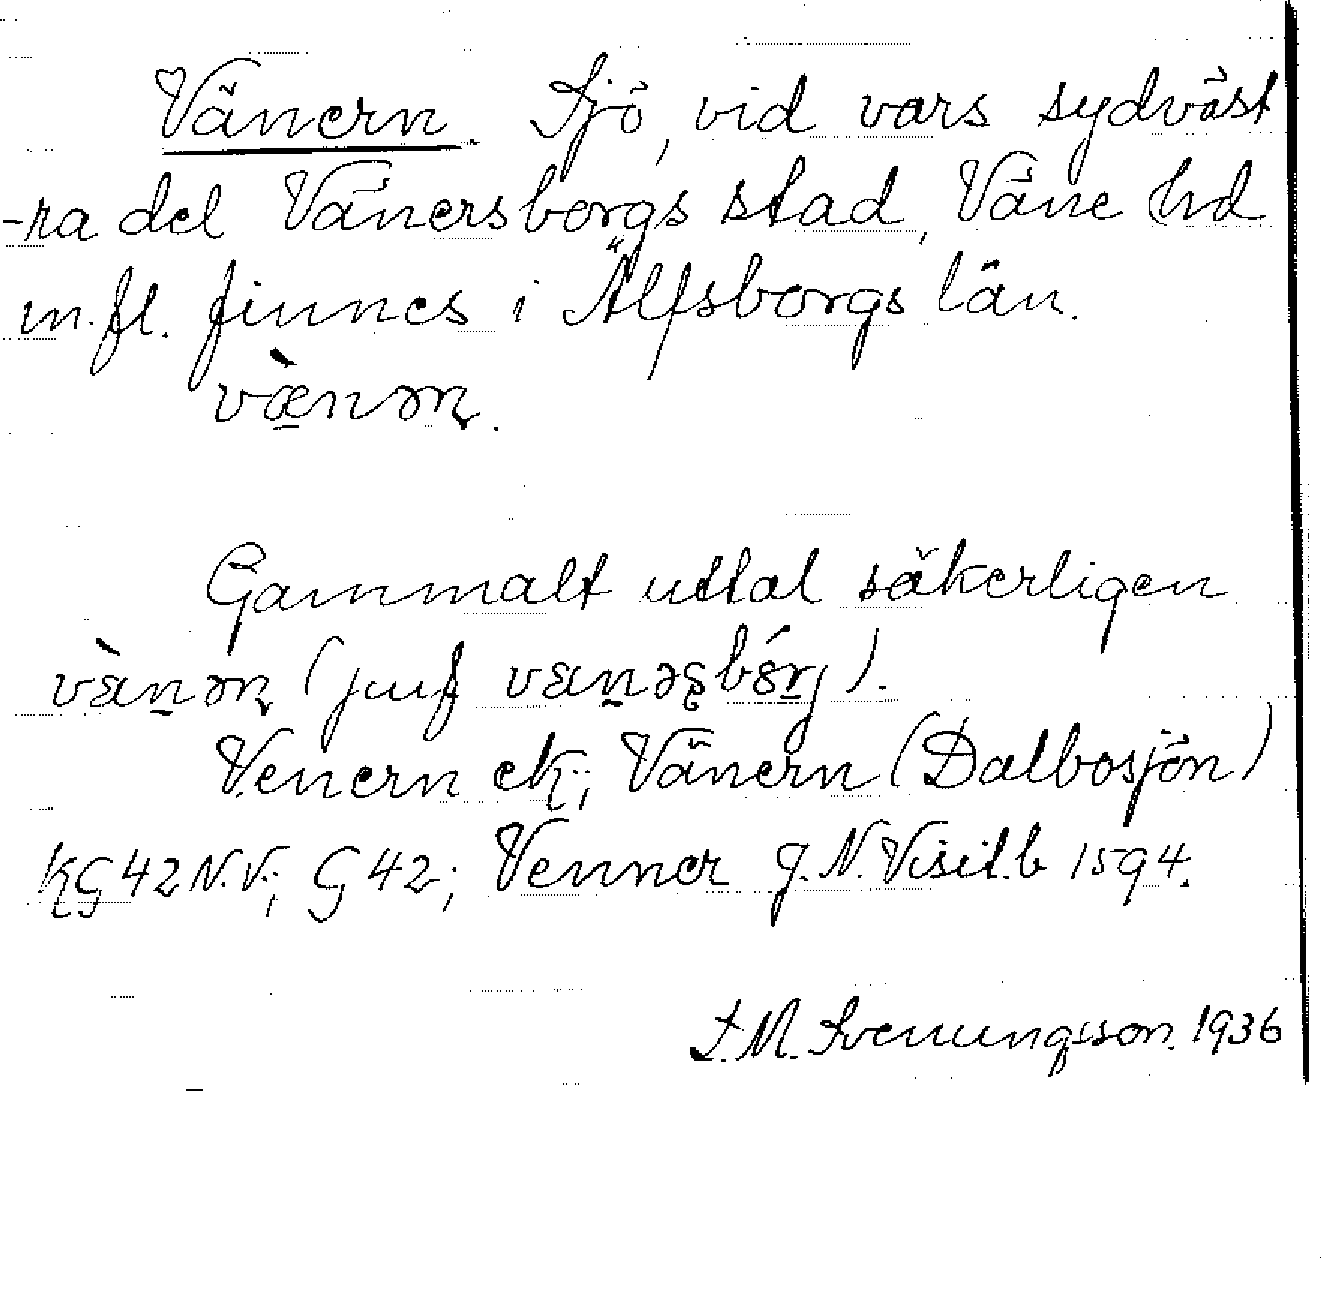 Vänern. Sjö, vid vars sydväst
-ra del Vänersborgs stad, Väne hd
m.fl. finnes i Älfsborgs län.
væ̀nəɳ.
Gammalt uttal säkerligen
vɛ̀nəɳ (jmf
Venern ek; Vänern (Dalbosjön)
KG 42 N.V.; G 42; Venner g. N. Visit.b 1594.
I. M. Svenungsson. 1936